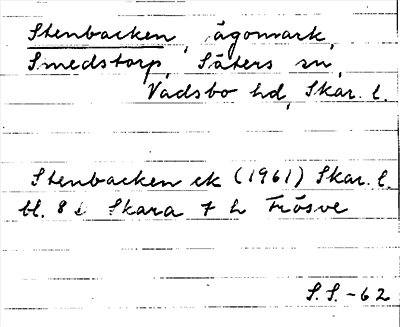 Stenbacken, ägomark,
Smedstorp, Säters sn,
Vadsbo hd, Skar. l.
Stenbacken ek (1961) Skar. l.
bl. 8 i Skara 7 h Frösve
S.S.-62